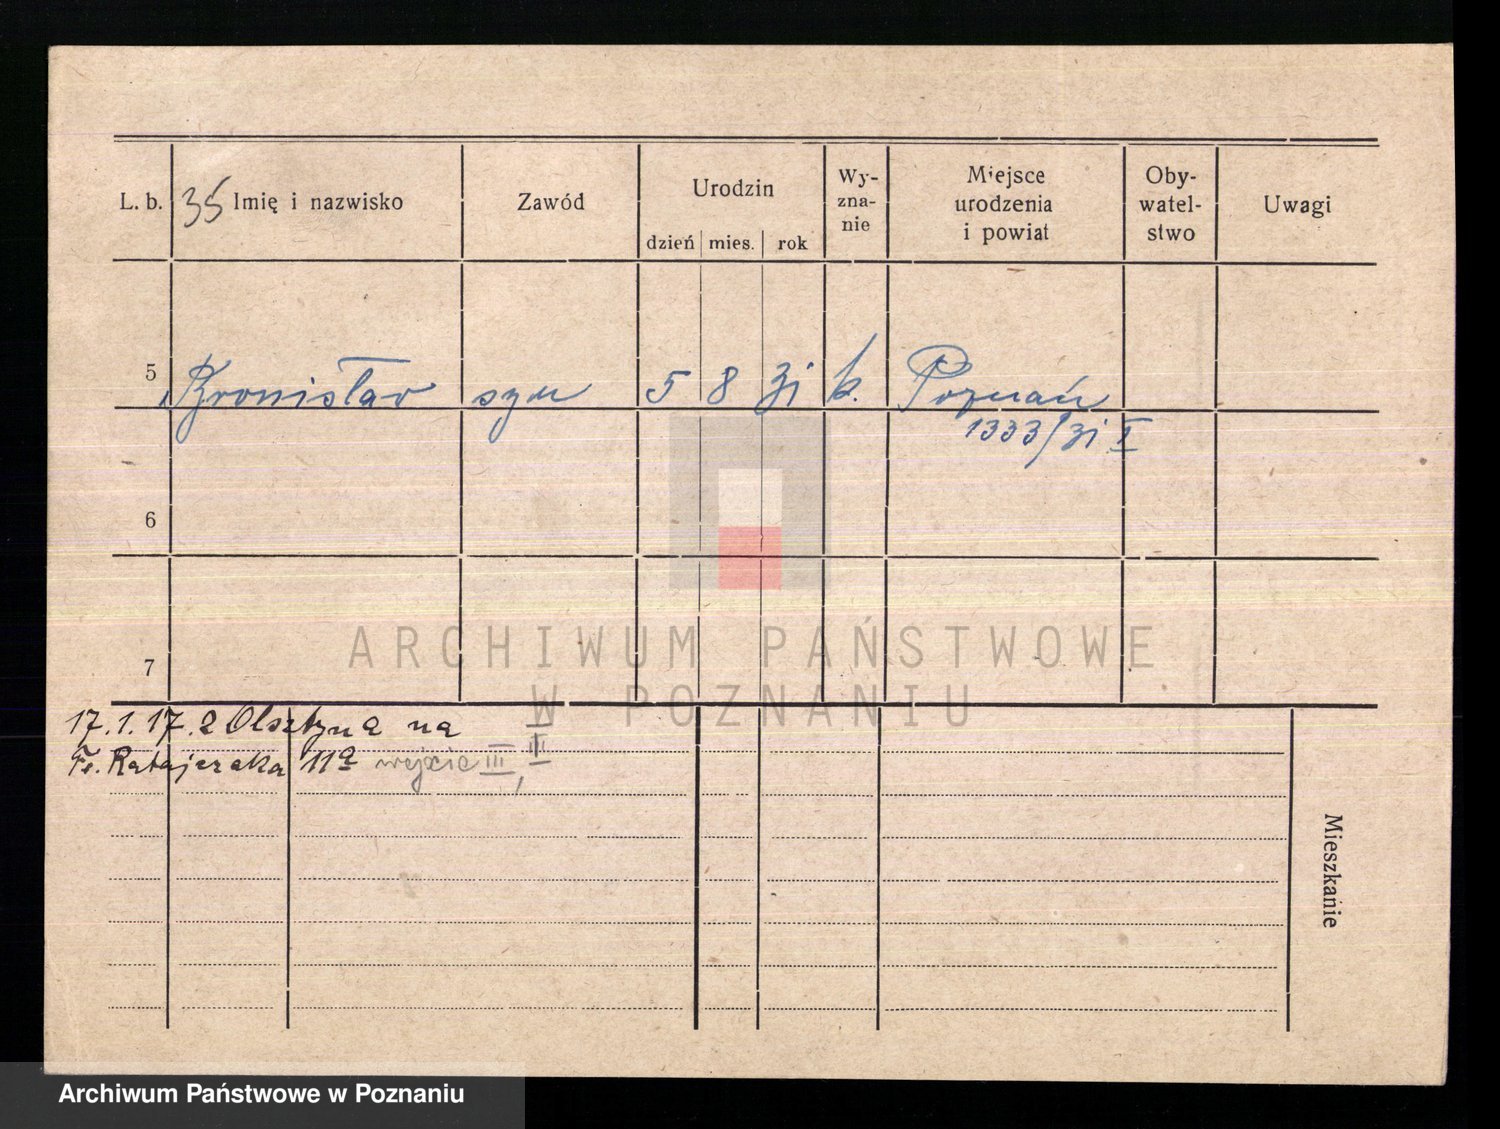 L. b.
35 Imię i nazwisko
Zawód
Urodzin
dzień mies. rok
Wy-
zna-
nie
Miejsce
urodzenia
i powiat
Oby-
watel-
stwo
Uwagi
5 Bronisław syn 5 8 31 k. Poznań
1333/31 I
6
7
ARCHIWUM PAŃSTWOWE
W POZNANIU
17.1. 17. z Olsztyna na II
Fr. Ratajczaka 11a wejście III, III
Mieszkanie
Archiwum Państwowe w Poznaniu